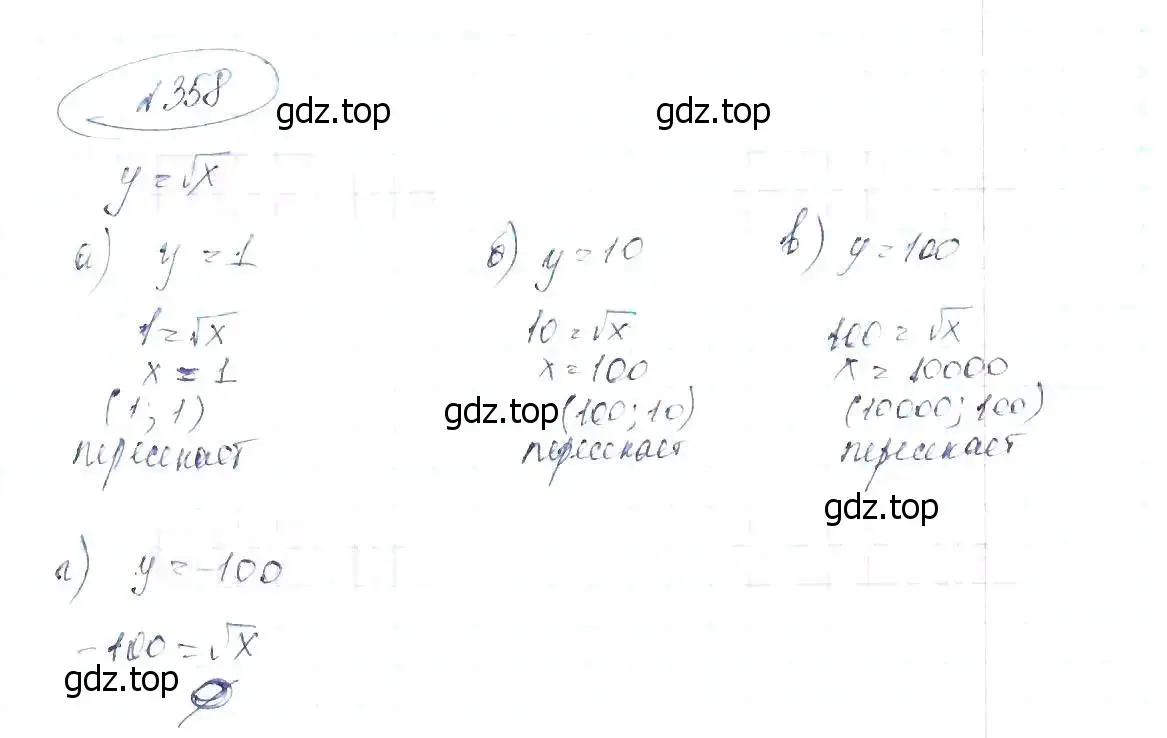 №358
gdz.top gdz.top
y = √x
а) y = 1
1 = √x
x = 1
(1; 1)
пересекает
б) y = 10
10 = √x
x = 100
gdz.top (100; 10)
пересекает
в) y = 100
100 = √x
x = 10000
(10000; 100)
пересекает
gdz.top
г) y = -100
-100 = √x
gdz.top ∅